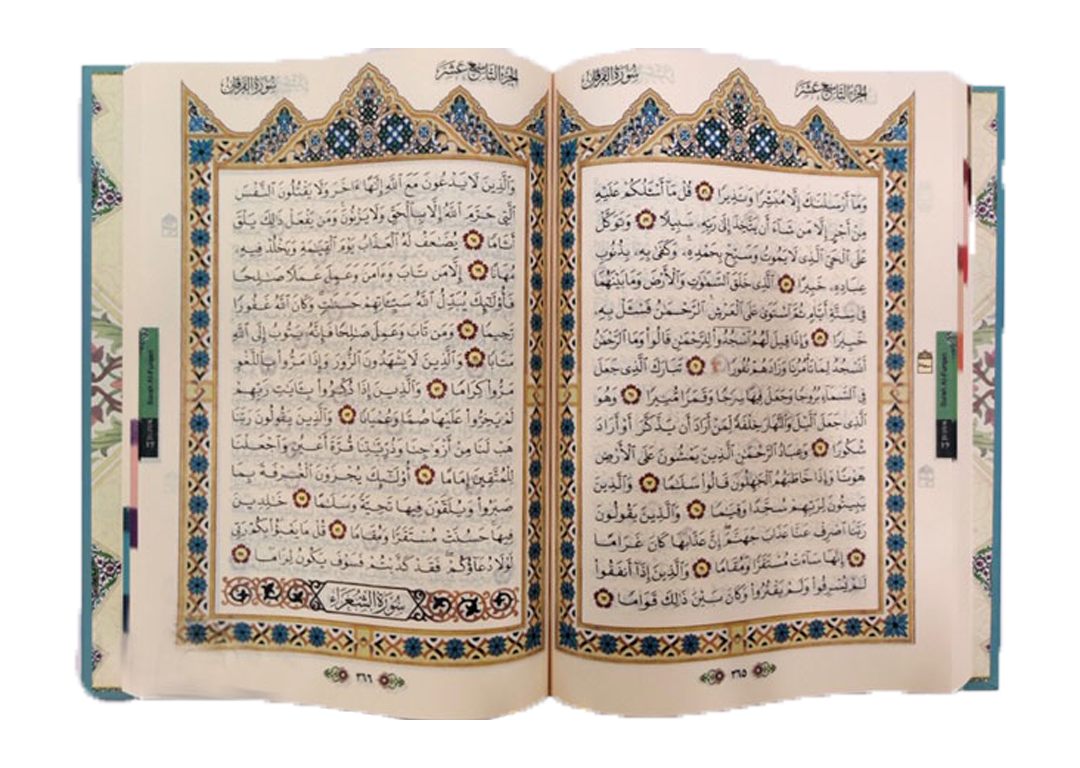 الجزء التاسع عشر
سورة الفرقان
وَمَآ أَرْسَلْنَٰكَ إِلَّا مُبَشِّرًا وَنَذِيرًا ٥٦ قُلْ مَآ أَسْـَٔلُكُمْ عَلَيْهِ
مِنْ أَجْرٍ إِلَّا مَن شَآءَ أَن يَتَّخِذَ إِلَىٰ رَبِّهِۦ سَبِيلًا ٥٧ وَتَوَكَّلْ
عَلَى ٱلْحَىِّ ٱلَّذِى لَا يَمُوتُ وَسَبِّحْ بِحَمْدِهِۦ ۚ وَكَفَىٰ بِهِۦ بِذُنُوبِ
عِبَادِهِۦ خَبِيرًا ٥٨ ٱلَّذِى خَلَقَ ٱلسَّمَٰوَٰتِ وَٱلْأَرْضَ وَمَا بَيْنَهُمَا
فِى سِتَّةِ أَيَّامٍ ثُمَّ ٱسْتَوَىٰ عَلَى ٱلْعَرْشِ ۚ ٱلرَّحْمَٰنُ فَسْـَٔلْ بِهِۦ
خَبِيرًا ٥٩ وَإِذَا قِيلَ لَهُمُ ٱسْجُدُوا۟ لِلرَّحْمَٰنِ قَالُوا۟ وَمَا ٱلرَّحْمَٰنُ
أَنَسْجُدُ لِمَا تَأْمُرُنَا وَزَادَهُمْ نُفُورًا ۩ ٦٠ تَبَارَكَ ٱلَّذِى جَعَلَ
فِى ٱلسَّمَآءِ بُرُوجًا وَجَعَلَ فِيهَا سِرَٰجًا وَقَمَرًا مُّنِيرًا ٦١ وَهُوَ
ٱلَّذِى جَعَلَ ٱلَّيْلَ وَٱلنَّهَارَ خِلْفَةً لِّمَنْ أَرَادَ أَن يَذَّكَّرَ أَوْ أَرَادَ
شُكُورًا ٦٢ وَعِبَادُ ٱلرَّحْمَٰنِ ٱلَّذِينَ يَمْشُونَ عَلَى ٱلْأَرْضِ
هَوْنًا وَإِذَا خَاطَبَهُمُ ٱلْجَٰهِلُونَ قَالُوا۟ سَلَٰمًا ٦٣ وَٱلَّذِينَ
يَبِيتُونَ لِرَبِّهِمْ سُجَّدًا وَقِيَٰمًا ٦٤ وَٱلَّذِينَ يَقُولُونَ
رَبَّنَا ٱصْرِفْ عَنَّا عَذَابَ جَهَنَّمَ ۖ إِنَّ عَذَابَهَا كَانَ غَرَامًا
٦٥ إِنَّهَا سَآءَتْ مُسْتَقَرًّا وَمُقَامًا ٦٦ وَٱلَّذِينَ إِذَآ أَنفَقُوا۟
لَمْ يُسْرِفُوا۟ وَلَمْ يَقْتُرُوا۟ وَكَانَ بَيْنَ ذَٰلِكَ قَوَامًا ٦٧
٣٦٥
Surah Al-Furqan
الجزء التاسع عشر
سورة الفرقان
وَٱلَّذِينَ لَا يَدْعُونَ مَعَ ٱللَّهِ إِلَٰهًا ءَاخَرَ وَلَا يَقْتُلُونَ ٱلنَّفْسَ
ٱلَّتِى حَرَّمَ ٱللَّهُ إِلَّا بِٱلْحَقِّ وَلَا يَزْنُونَ ۚ وَمَن يَفْعَلْ ذَٰلِكَ يَلْقَ
أَثَامًا ٦٨ يُضَٰعَفْ لَهُ ٱلْعَذَابُ يَوْمَ ٱلْقِيَٰمَةِ وَيَخْلُدْ فِيهِۦ
مُهَانًا ٦٩ إِلَّا مَن تَابَ وَءَامَنَ وَعَمِلَ عَمَلًا صَٰلِحًا
فَأُو۟لَٰٓئِكَ يُبَدِّلُ ٱللَّهُ سَيِّـَٔاتِهِمْ حَسَنَٰتٍ ۗ وَكَانَ ٱللَّهُ غَفُورًا
رَّحِيمًا ٧٠ وَمَن تَابَ وَعَمِلَ صَٰلِحًا فَإِنَّهُۥ يَتُوبُ إِلَى ٱللَّهِ
مَتَابًا ٧١ وَٱلَّذِينَ لَا يَشْهَدُونَ ٱلزُّورَ وَإِذَا مَرُّوا۟ بِٱللَّغْوِ
مَرُّوا۟ كِرَامًا ٧٢ وَٱلَّذِينَ إِذَا ذُكِّرُوا۟ بِـَٔايَٰتِ رَبِّهِمْ
لَمْ يَخِرُّوا۟ عَلَيْهَا صُمًّا وَعُمْيَانًا ٧٣ وَٱلَّذِينَ يَقُولُونَ رَبَّنَا
هَبْ لَنَا مِنْ أَزْوَٰجِنَا وَذُرِّيَّٰتِنَا قُرَّةَ أَعْيُنٍ وَٱجْعَلْنَا
لِلْمُتَّقِينَ إِمَامًا ٧٤ أُو۟لَٰٓئِكَ يُجْزَوْنَ ٱلْغُرْفَةَ بِمَا
صَبَرُوا۟ وَيُلَقَّوْنَ فِيهَا تَحِيَّةً وَسَلَٰمًا ٧٥ خَٰلِدِينَ
فِيهَا ۚ حَسُنَتْ مُسْتَقَرًّا وَمُقَامًا ٧٦ قُلْ مَا يَعْبَؤُا۟ بِكُمْ رَبِّى
لَوْلَا دُعَآؤُكُمْ ۖ فَقَدْ كَذَّبْتُمْ فَسَوْفَ يَكُونُ لِزَامًا ٧٧
سُورَةُ الشُّعَرَاءِ
٣٦٦
Surah Al-Furqan